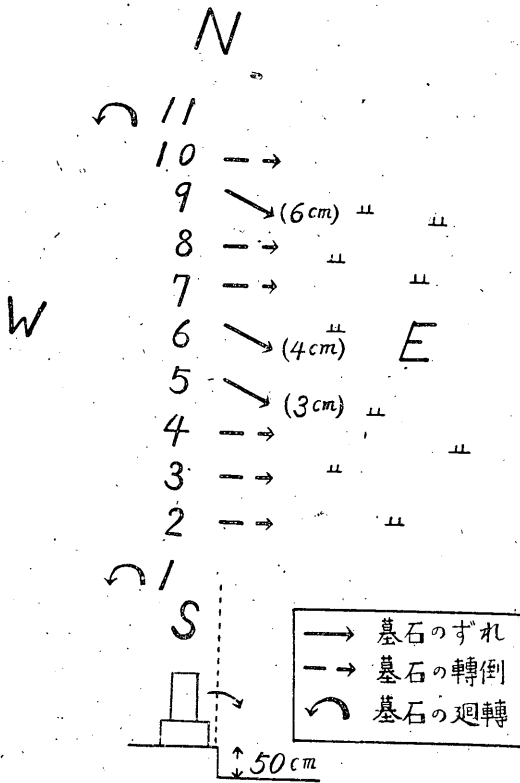 N
11
10
9 (6cm)
8
7
W
6 (4cm)
E
5 (3cm)
4
3
2
1
S
墓石のずれ
墓石の轉倒
墓石の廻轉
50cm